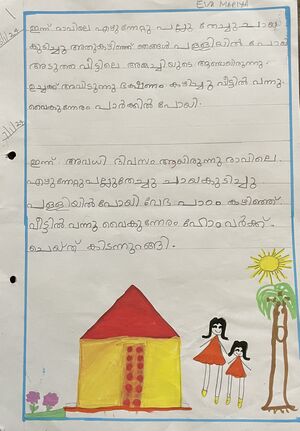 EVA MARIYA
ഇന്ന് രാവിലെ എഴുന്നേറ്റു പല്ലു തേച്ചു ചായ
കുടിച്ചു അതുകഴിഞ്ഞ് ഞങ്ങൾ പള്ളിയിൽ പോയി
അടുത്ത വീട്ടിലെ അങ്കച്ചിയുടെ ആണ്ടായിരുന്നു.
ഉച്ചക്ക് അവിടുന്നു ഭക്ഷണം കഴിച്ചു വീട്ടിൽ വന്നു.
വൈകുന്നേരം പാർക്കിൽ പോയി.
7/1/24
ഇന്ന് അവധി ദിവസം ആയിരുന്നു രാവിലെ
എഴുന്നേറ്റു പല്ലുതേച്ചു ചായകുടിച്ചു
പള്ളിയിൽപോയി വേദ പാഠം കഴിഞ്ഞ്
വീട്ടിൽ വന്നു വൈകുന്നേരം ഹോംവർക്ക്
ചെയ്ത് കിടന്നുറങ്ങി.